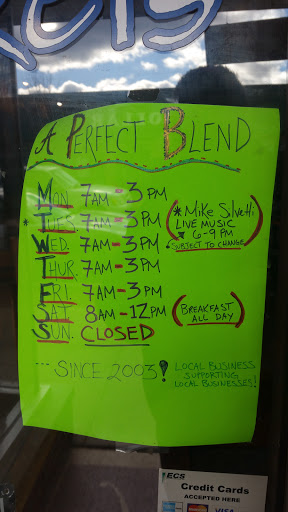 A PERFECT BLEND
MON. 7AM-3PM
* TUES. 7AM-3PM
WED. 7AM-3PM
THUR. 7AM-3PM
FRI. 7AM-3PM
SAT. 8AM-12PM
SUN. CLOSED
(* Mike Silvetti
LIVE MUSIC
6-9 PM
SUBJECT TO CHANGE)
(BREAKFAST
ALL DAY)
--- SINCE 2003!
LOCAL BUSINESS
SUPPORTING
LOCAL BUSINESSES!
ECS
Credit Cards
ACCEPTED HERE
VISA